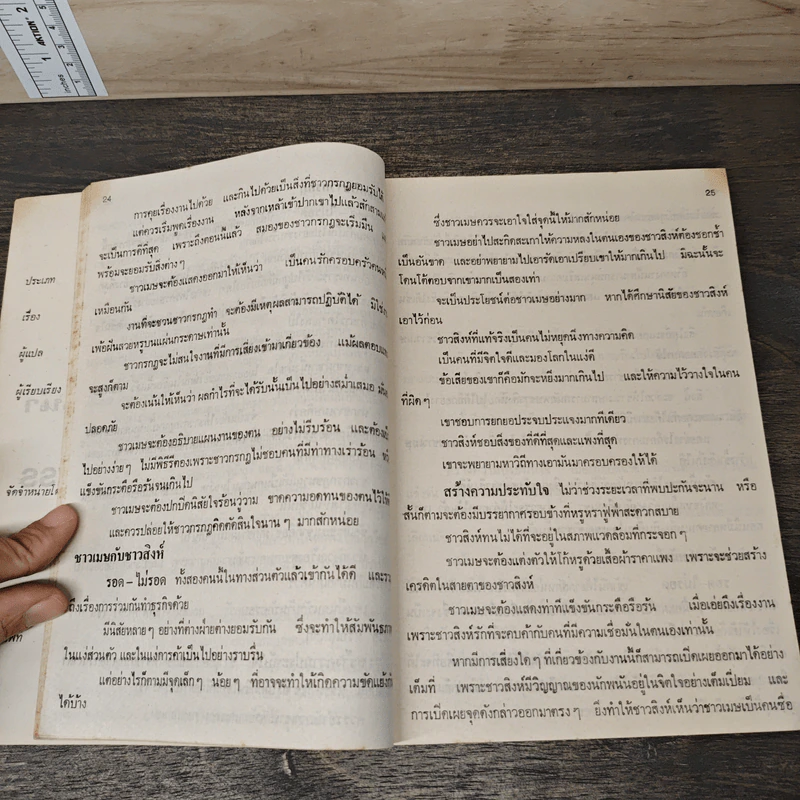 2
AKTION
inches
1
1
2
3
4
5
ประเภท
เรื่อง
ผู้แปล
ผู้เรียบเรียง
จัดจำหน่ายโดย
24
การคุยเรื่องงานไปด้วย และกินไปด้วยเป็นสิ่งที่ชาวกรกฎยอมรับได้
แต่ควรเริ่มพูดเรื่องงาน หลังจากเหล้าเข้าปากเขาไปแล้วสักสาม
จะเป็นการดีที่สุด เพราะถึงตอนนี้แล้ว สมองของชาวกรกฎจะเริ่มมึน
พร้อมจะยอมรับสิ่งต่างๆ
ชาวเมษจะต้องแสดงออกมาให้เห็นว่า เป็นคนรักครอบครัว
เหมือนกัน
งานที่จะชวนชาวกรกฎทำ จะต้องมีเหตุผลสามารถปฏิบัติได้ มิใช่
เพ้อฝันสวยหรูบนแผ่นกระดาษเท่านั้น
ชาวกรกฎจะไม่สนใจงานที่มีการเสี่ยงเข้ามาเกี่ยวข้อง แม้ผลตอบแทน
จะสูงก็ตาม
จะต้องเน้นให้เห็นว่า ผลกำไรที่จะได้รับนั้นเป็นไปอย่างสม่ำเสมอ
ปลอดภัย
ชาวเมษจะต้องอธิบายแผนงานของตน อย่างไม่รีบร้อน และต้อง
ไปอย่างง่ายๆ ไม่มีพิธีรีตองเพราะชาวกรกฎไม่ชอบคนที่มีท่าทางเร่าร้อน
แข็งขันกระตือรือร้นจนเกินไป
ชาวเมษจะต้องปกปิดนิสัยใจร้อนวู่วาม ขาดความอดทนของตนไว้ให้
และควรปล่อยให้ชาวกรกฎคิดตัดสินใจนานๆ มากสักหน่อย
ชาวเมษกับชาวสิงห์
รอด – ไม่รอด ทั้งสองคนนี้ในทางส่วนตัวแล้วเข้ากันได้ดี และ
ถึงเรื่องการร่วมกันทำธุรกิจด้วย
มีนิสัยหลายๆ อย่างที่ต่างฝ่ายต่างยอมรับกัน ซึ่งจะทำให้สัมพันธภาพ
ในแง่ส่วนตัว และในแง่การค้าเป็นไปอย่างราบรื่น
แต่อย่างไรก็ตามมีจุดเล็กๆ น้อยๆ ที่อาจจะทำให้เกิดความขัดแย้งกัน
ได้บ้าง
25
ซึ่งชาวเมษควรจะเอาใจใส่จุดนี้ให้มากสักหน่อย
ชาวเมษอย่าไปสะกิดสะเกาให้ความหลงในตนเองของชาวสิงห์ต้องชอกช้ำ
เป็นอันขาด และอย่าพยายามไปเอารัดเอาเปรียบเขาให้มากเกินไป มิฉะนั้นจะ
โดนโต้ตอบจากเขามากเป็นสองเท่า
จะเป็นประโยชน์ต่อชาวเมษอย่างมาก หากได้ศึกษานิสัยของชาวสิงห์
เอาไว้ก่อน
ชาวสิงห์ที่แท้จริงเป็นคนไม่หยุดนิ่งทางความคิด
เป็นคนที่มีจิตใจดีและมองโลกในแง่ดี
ข้อเสียของเขาก็คือมักจะหยิ่งมากเกินไป และให้ความไว้วางใจในคน
ที่ผิดๆ
เขาชอบการยกยอประจบประแจงมากทีเดียว
ชาวสิงห์ชอบสิ่งของที่ดีที่สุดและแพงที่สุด
เขาจะพยายามหาวิถีทางเอามันมาครอบครองให้ได้
สร้างความประทับใจ ไม่ว่าช่วงระยะเวลาที่พบปะกันจะนาน หรือ
สั้นก็ตามจะต้องมีบรรยากาศรอบข้างที่หรูหราฟู่ฟ่าสะดวกสบาย
ชาวสิงห์ทนไม่ได้ที่จะอยู่ในสภาพแวดล้อมที่กระจอกๆ
ชาวเมษจะต้องแต่งตัวให้โก้หรูด้วยเสื้อผ้าราคาแพง เพราะจะช่วยสร้าง
เครดิตในสายตาของชาวสิงห์
ชาวเมษจะต้องแสดงท่าทีแข็งขันกระตือรือร้น เมื่อเอ่ยถึงเรื่องงาน
เพราะชาวสิงห์รักที่จะคบค้ากับคนที่มีความเชื่อมั่นในตนเองเท่านั้น
หากมีการเสี่ยงใดๆ ที่เกี่ยวข้องกับงานนี้ก็สามารถเปิดเผยออกมาได้อย่าง
เต็มที่ เพราะชาวสิงห์มีวิญญาณของนักพนันอยู่ในจิตใจอย่างเต็มเปี่ยม และ
การเปิดเผยจุดดังกล่าวออกมาตรงๆ ยิ่งทำให้ชาวสิงห์เห็นว่าชาวเมษเป็นคนซื่อ